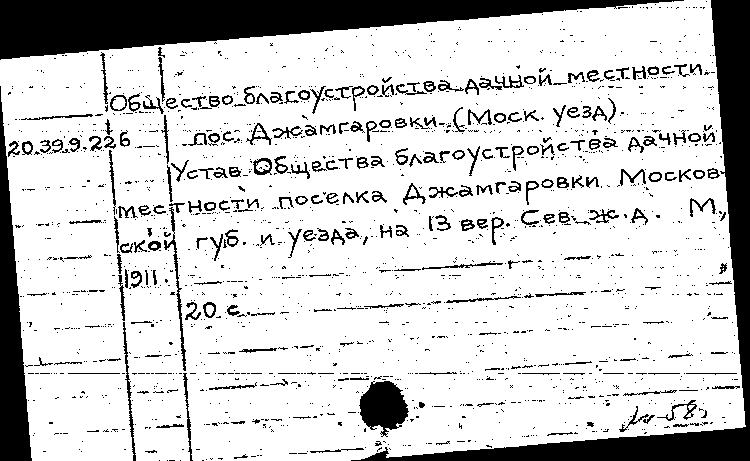 Общество благоустройства дачной местности
20.39.9.226 пос. Джамгаровки (Моск. уезд).
Устав Общества благоустройства дачной
местности поселка Джамгаровки Москов-
ской губ. и уезда, на 13 вер. Сев. ж.д. М,
1911.
20 с.